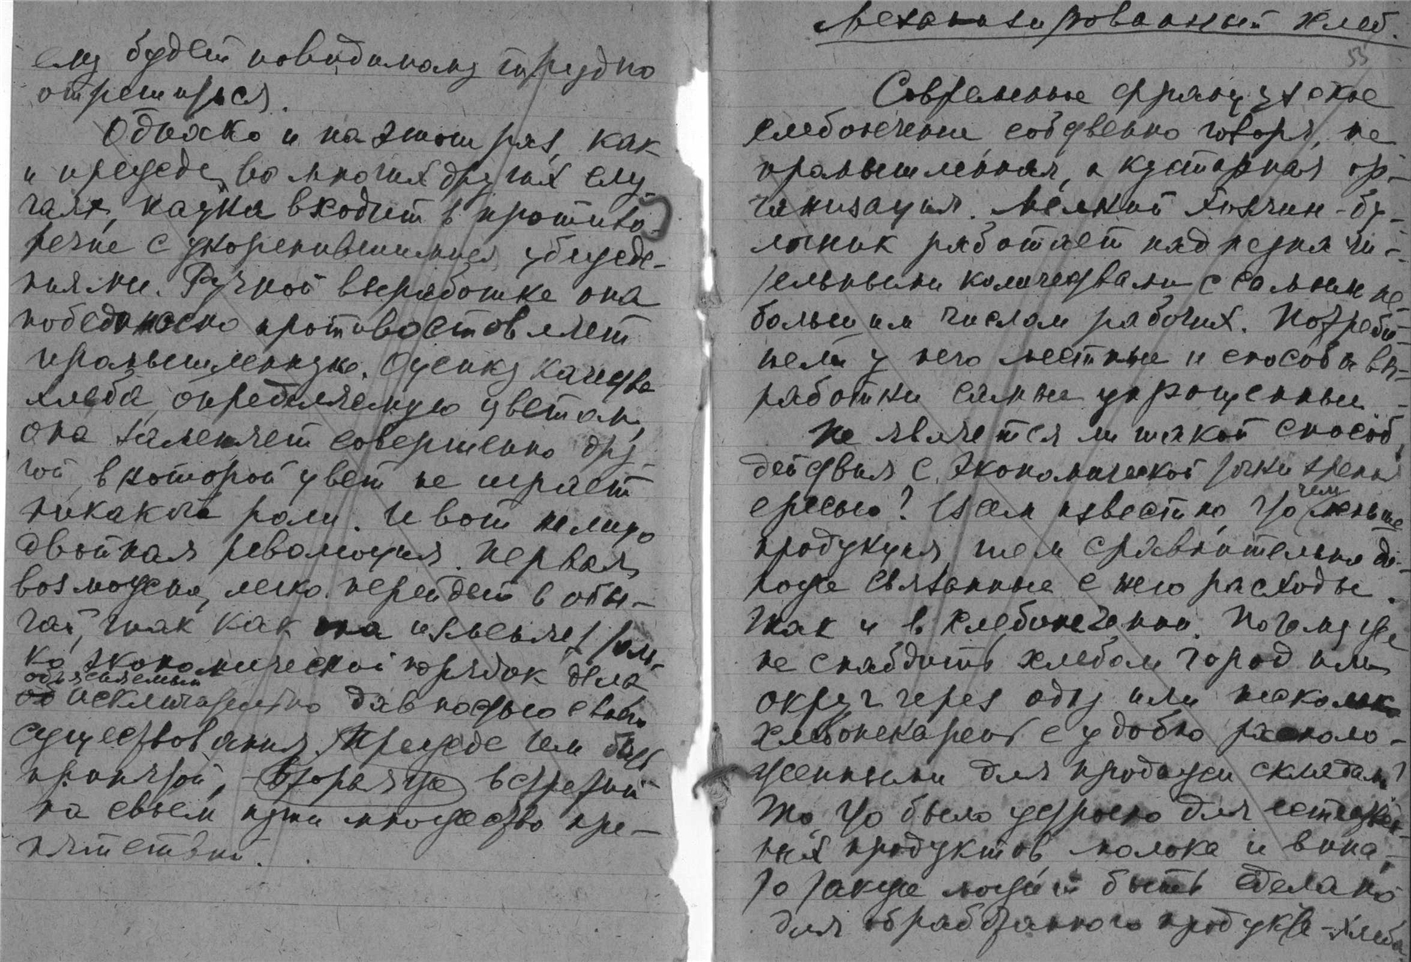 ему будет повидимому трудно
отрешиться.
Однако и на этот раз, как
и прежде, во многих других слу-
чаях, наука входит в противо-
речие с укоренившимися убежде-
ниями. Ручной выработке она
победоносно противоставляет
промышленную. Оценку качества
хлеба, определяемую цветом,
она заменяет совершенно дру-
гой, в которой цвет не играет
никакой роли. И вот налицо
двойная революция. Первая,
возможно, легко перейдет в обы-
чай, так как она изменяет толь-
ко экономический порядок дела,
объясняемый
исключительно давностью своего
существования. Прежде чем быть
принятой, вторая же встретит
на своем пути множество пре-
пятствий.
Механизированный хлеб.
53
Современное французское
хлебопечение собственно говоря, не
промышленная, а кустарная ор-
ганизация. Мелкий хозяин-бу-
лочник работает над незначи-
тельными количествами с самым не-
большим числом рабочих. Потреби-
тели у него местные и способы вы-
работки самые упрощенные.
Не является ли такой способ
действия с экономической точки зрения
ересью? Всем известно, что чем меньше
продукция, тем сравнительно до-
роже связанные с нею расходы.
Так и в хлебопечении. Почему же
не снабдить хлебом город или
округ через одну или несколько
хлебопекарен с удобно располо-
женными для продажи складами?
То что было устроено для естествен-
ных продуктов молока и вина,
то также может быть сделано
для обработанного продукта - хлеба